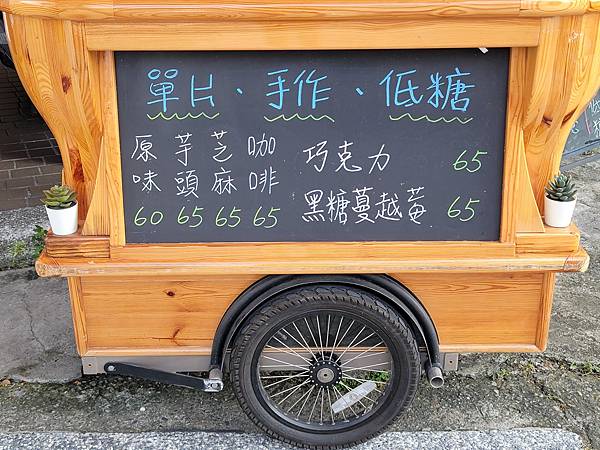 單片、手作、低糖
原味 60
芋頭 65
芝麻 65
咖啡 65
巧克力 65
黑糖蔓越莓 65